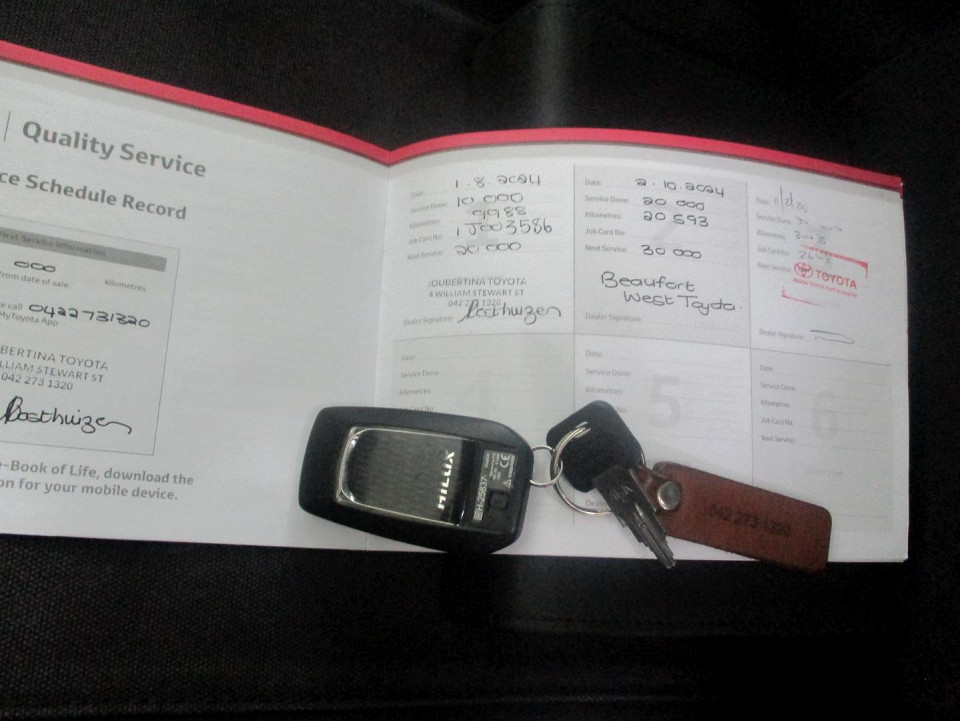 Quality Service
ce Schedule Record
000
from date of sale. kilometres
e call 0422731320
MyToyota App
UBERTINA TOYOTA
LLIAM STEWART ST
042 273 1320
e-Book of Life, download the
on for your mobile device.
Date: 1.8.2024
Service Done: 10 000
Kilometres: 9988
Job Card No:
Next Service: 20 000
JOUBERTINA TOYOTA
4 WILLIAM STEWART ST
042 273 1320
Dealer Signature:
Date: 2.10.2024
Service Done: 20 000
Kilometres: 20 593
Job Card No:
Next Service: 30 000
Beaufort
West Toyota
Dealer Signature:
Date:
Service Done:
Kilometres:
Job Card No:
Next Service:
TOYOTA
Dealer Signature:
Date:
Service Done:
Kilometres:
Card No:
Date:
Service Done:
Kilometres:
Job Card No:
5
Date:
Service Done:
Kilometres:
Job Card No:
Next Service:
6
HILUX
CE
042 273 1320